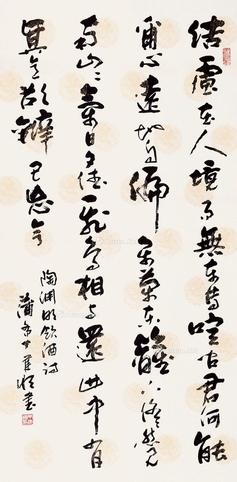 结廬在人境而無車馬喧問君何能
爾心遠地自偏采菊東籬下悠然見
南山々氣日夕佳飛鳥相與還此中有
真意欲辨已忘言
陶淵明飲酒詩